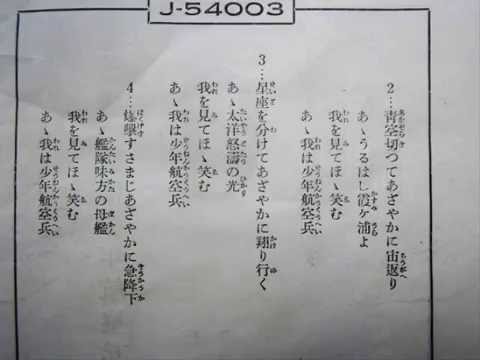 J-54003
2…靑空切つてあざやかに宙返り
あゝうるはし霞ヶ浦よ
我を見てほゝ笑む
あゝ我は少年航空兵
3…星座を分けてあざやかに翔り行く
あゝ太洋怒濤の光
我を見てほゝ笑む
あゝ我は少年航空兵
4…爆擊すさまじあざやかに急降下
あゝ艦隊味方の母艦
我を見てほゝ笑む
あゝ我は少年航空兵